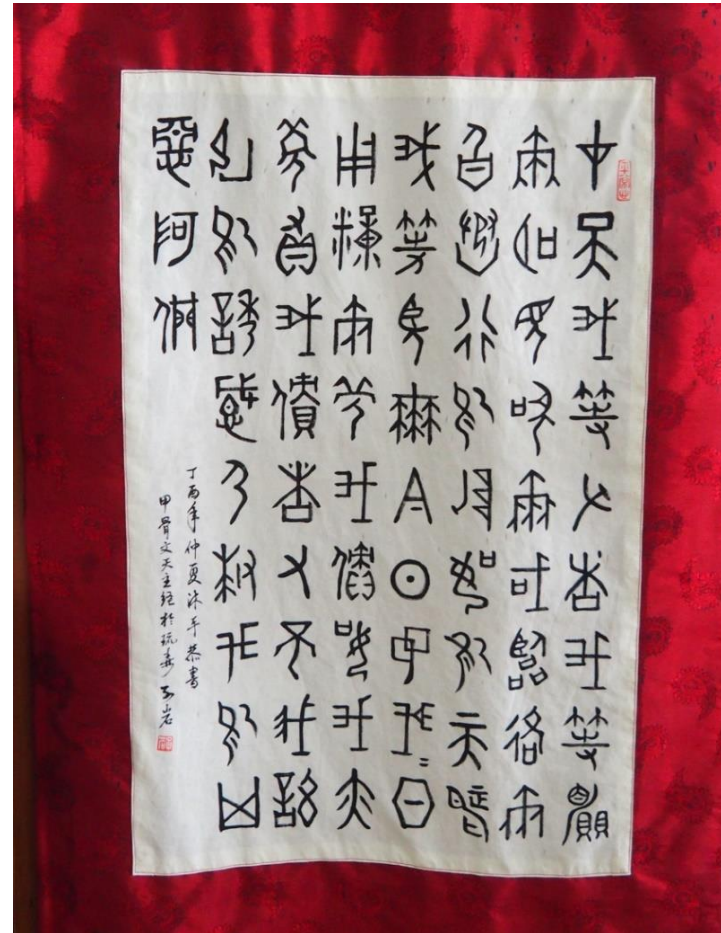 才天我等父者我等願
爾名見聖爾國臨格爾
旨承行於地如於天焉
我等望爾今日與我=日
用糧爾免我債如我亦
免負我債者又不我許
陷於誘惑乃救我於凶
惡阿們
丁酉年仲夏沐手恭書
甲骨文天主经於岩